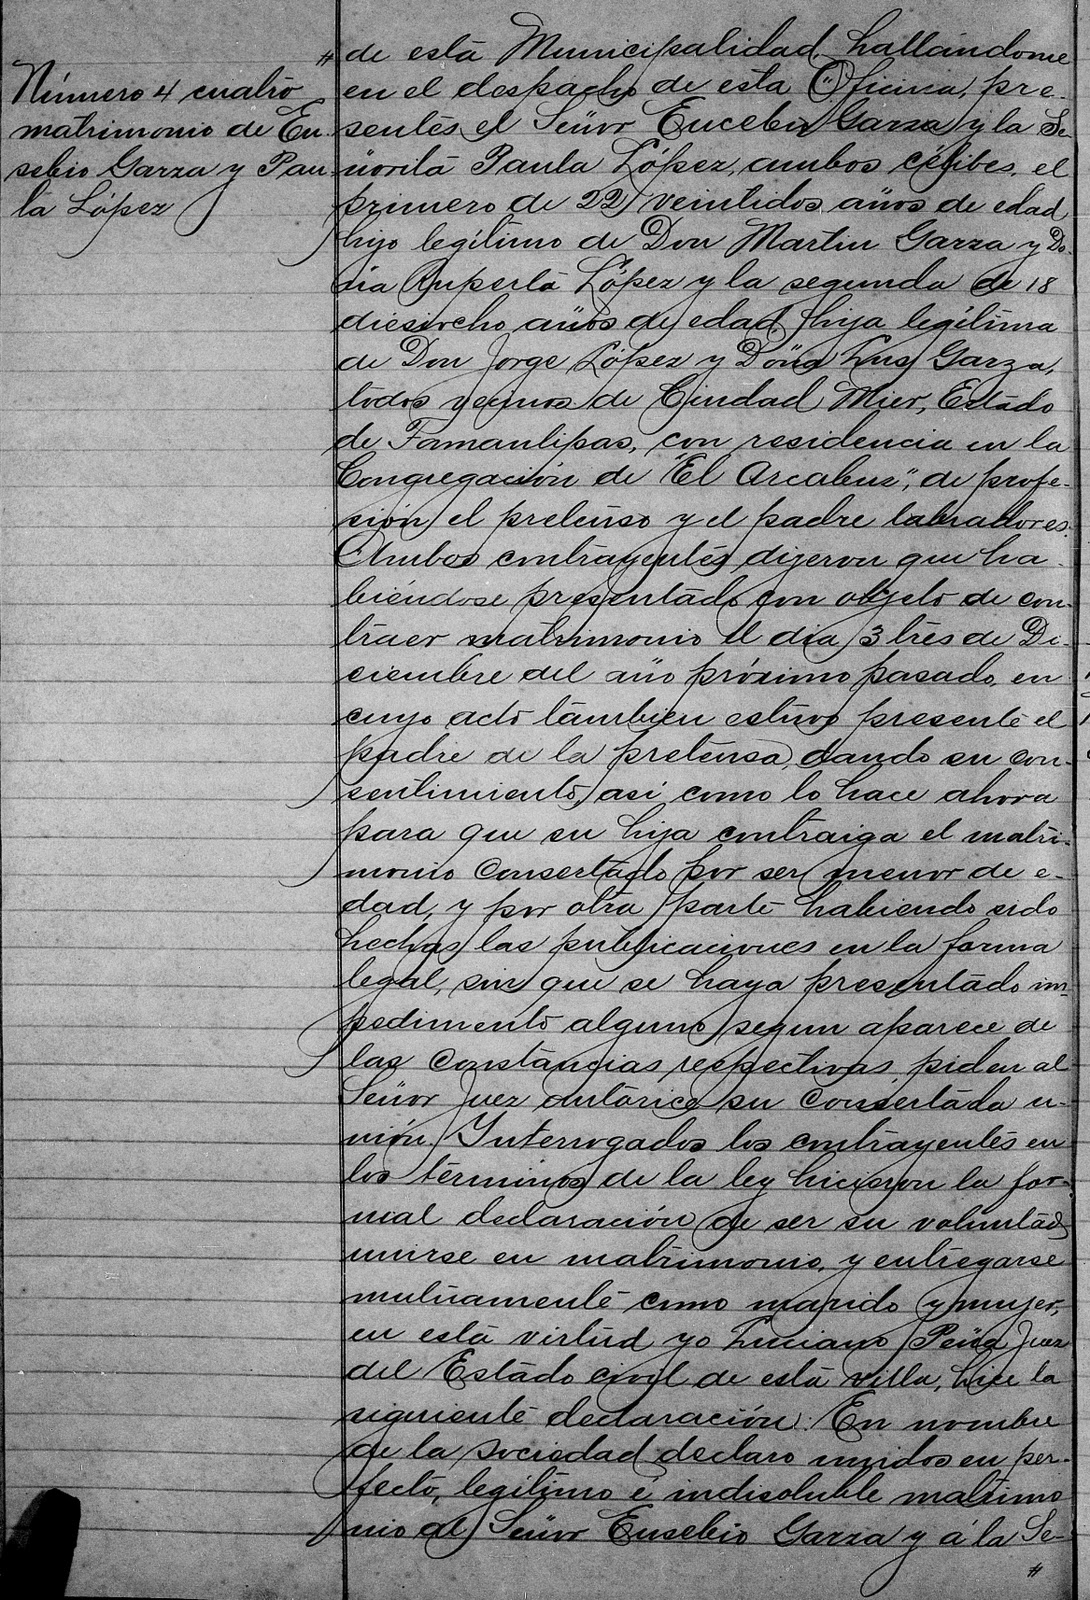 Número 4 cuatro
matrimonio de Eu
sebio Garza y Pau
la López
# de esta Municipalidad, hallándome
en el despacho de esta Oficina, pre-
sentes el Señor Eucebio Garza y la Se
ñorita Paula López, ambos célibes, el
primero de 22 veintidos años de edad,
hijo legítimo de Don Martin Garza y Do
ña Ruperta López y la segunda de 18
diesiocho años de edad, hija legítima
de Don Jorge López y Doña Luz Garza,
todos vecinos de Ciudad Mier, Estado
de Tamaulipas, con residencia en la
Congregación de "El Arcabuz", de profe-
sión el pretenso y el padre labradores.
Ambos contrayentes dijeron que ha-
biéndose presentado con objeto de con-
traer matrimonio el dia 3 tres de Di-
ciembre del año próximo pasado, en
cuyo acto tambien estuvo presente el
padre de la pretensa, dando su con-
sentimiento, así como lo hace ahora
para que su hija contraiga el matri-
monio consertado por ser menor de e-
dad, y por otra parte habiendo sido
hechas las publicaciones en la forma
legal, sin que se haya presentado im-
pedimento alguno segun aparece de
las constancias respectivas, piden al
Señor Juez autorice su consertada u-
nión. Interrogados los contrayentes en
los términos de la ley hicieron la for-
mal declaración de ser su voluntad
unirse en matrimonio, y entregarse
mutuamente como marido y mujer,
en esta virtud yo Luciano Peña Juez
del Estado civil de esta villa, hice la
siguiente declaración: En nombre
de la sociedad declaro unidos en per-
fecto, legítimo é indisoluble matrimo
nio al Señor Eusebio Garza y á la Se-
#